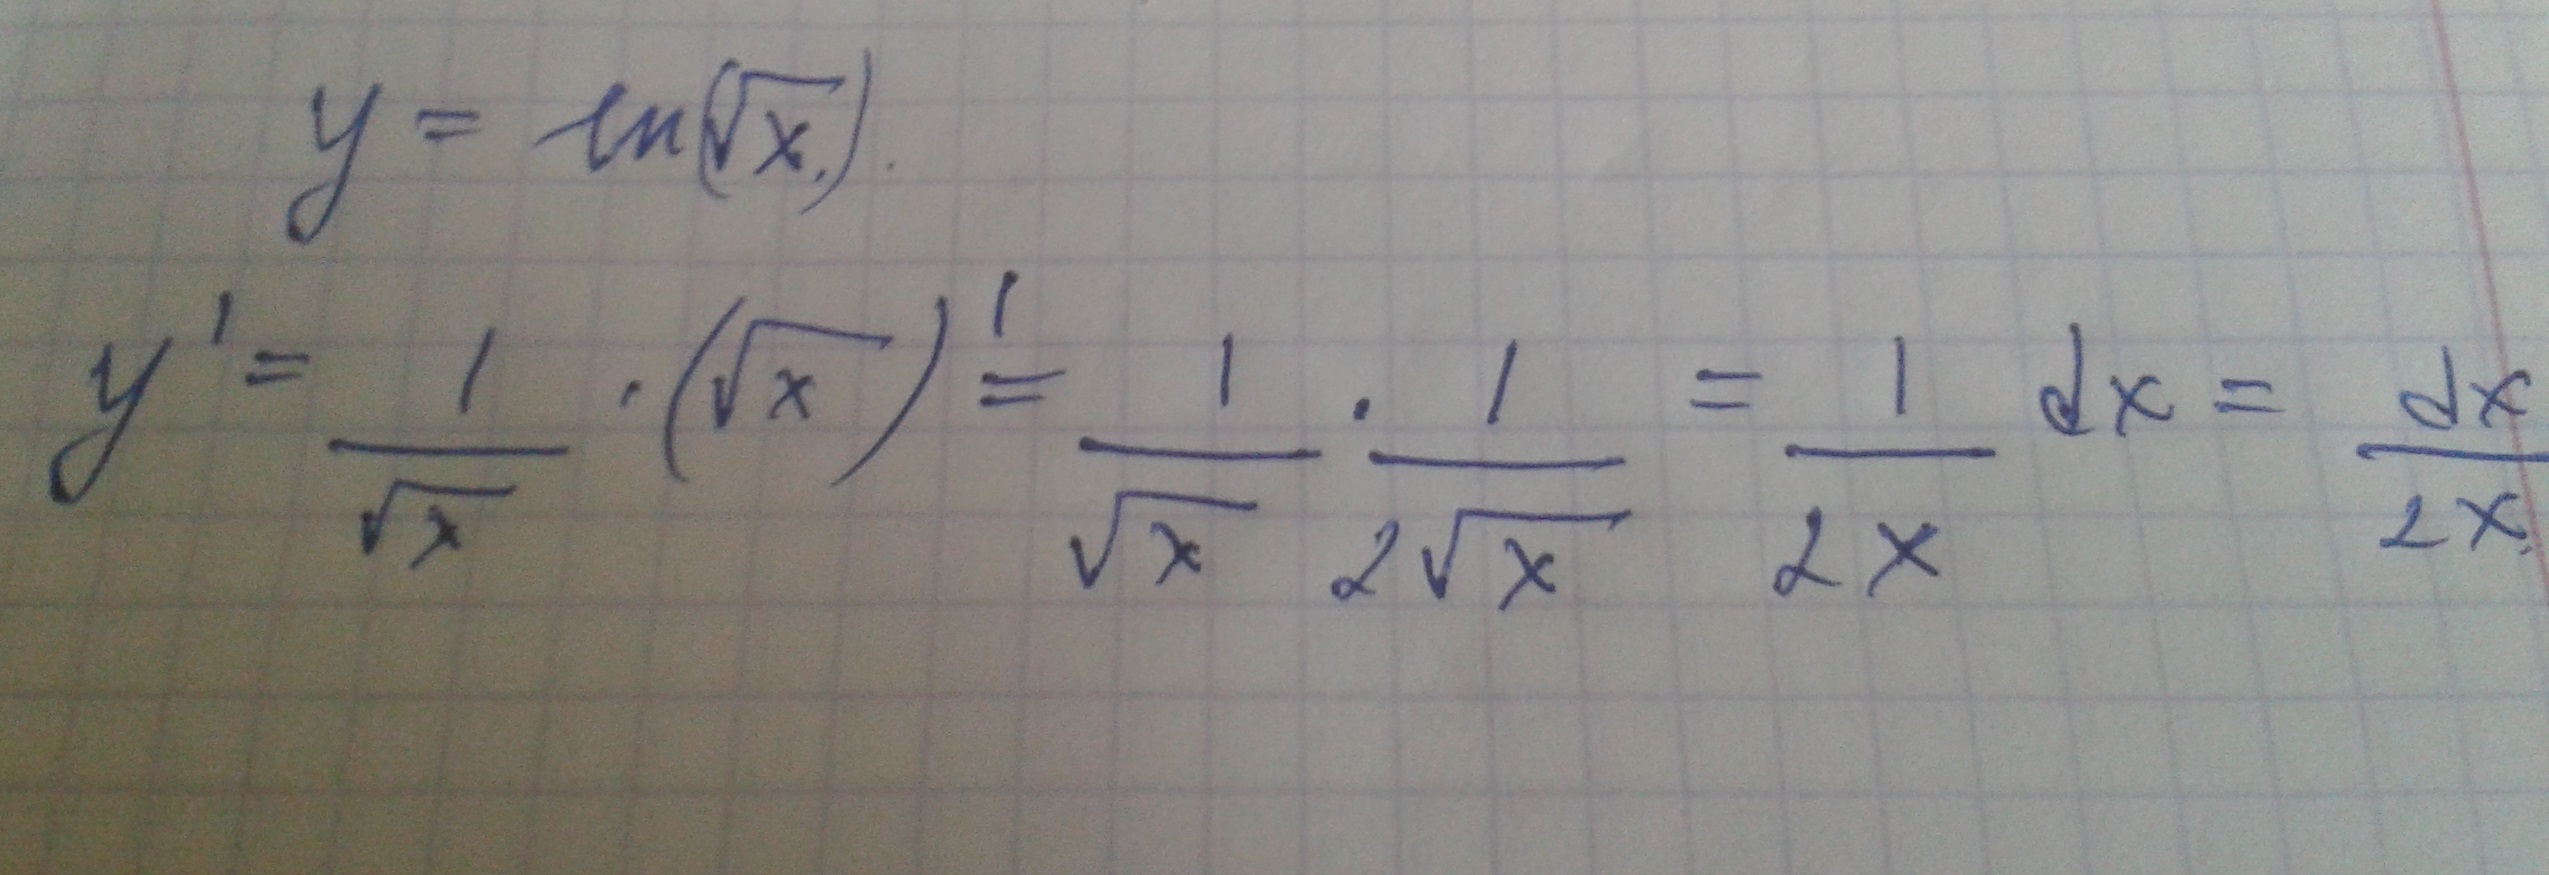 y = ln(√x).
y' = 1/√x · (√x)' = 1/√x · 1/2√x = 1/2x dx = dx/2x